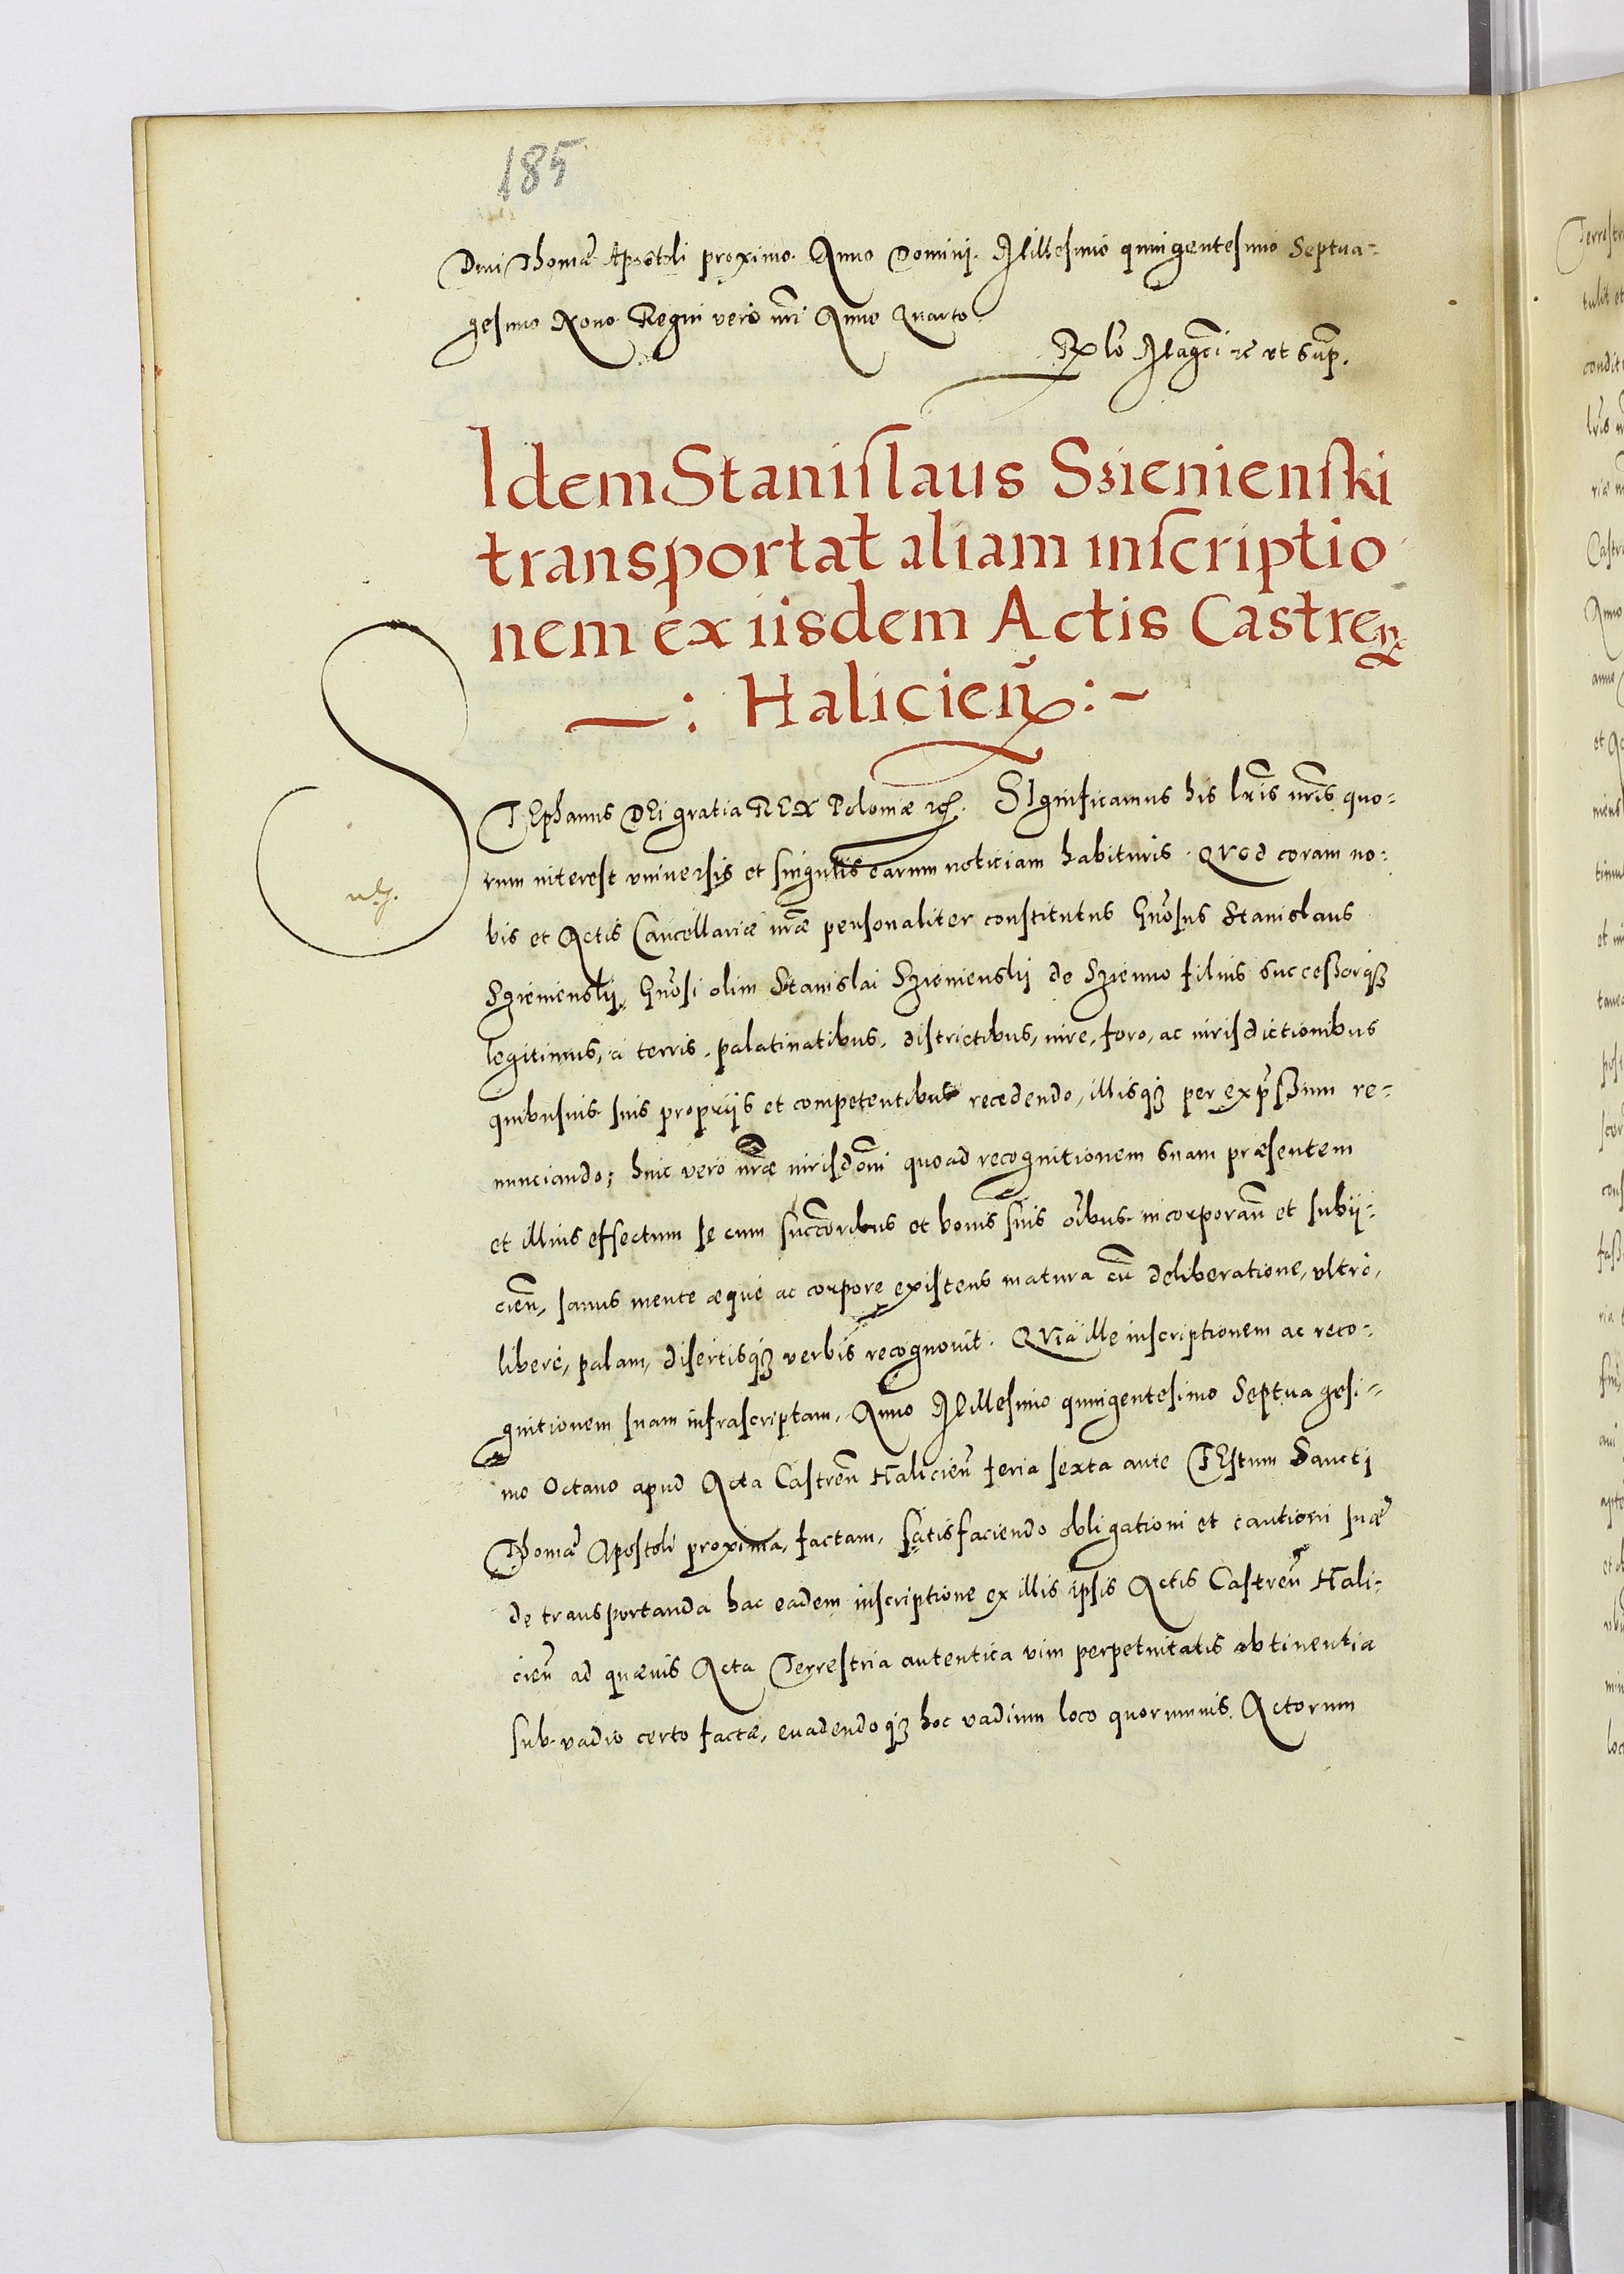 185
Diui Thomæ Apostoli proximo. Anno Domini. Millesimo quingentesimo Septua-
gesimo Nono Regni vero nrĩ Anno Quarto.
Rlõ Magcĩ rc ut sup̃.
Idem Stanislaus Szienienski
transportat aliam inscriptio
nem ex iisdem Actis Castren̄
—: Halicien̄ :-
STEphanus DEi gratia REX Poloniæ rc̃. SIgnificamus his lrĩs nrĩs quo-
rum interest vniuersis et singulis earum noticiam habituris. QVod coram no-
bis et Actis Cancellariæ nræ̃ personaliter constitutus Gnõsus Stanislaus
Szienienskij, Gnõsi olim Stanislai Szienienskij de Szienno filius successorq;
legitimus, à terris, palatinatibus, districtibus, iure, foro, ac iurisdictionibus
quibusuis suis proprijs et competentibus recedendo, illisq; per exp̃ssum re-
nunciando; huic verò nræ̃ iurisdõni quoad recognitionem suam præsentem
et illius effectum se cum succ̃oribus et bonis suis oĩbus incorporan̄ et subij-
cien̄, sanus mente æquè ac corpore existens matura cũ deliberatione, vltrò,
liberè, palam, disertisq; verbis recognouit. QVia ille inscriptionem ac reco-
gnitionem suam infrascriptam, Anno Millesimo quingentesimo Septuagesi-
mo Octauo apud Acta Castren̄ Halicien̄ feria sexta ante FEstum Sancti
Thomæ Apostoli proxima, factam, satisfaciendo obligationi et cautioni suæ
de transportanda hac eadem inscriptione ex illis ipsis Actis Castren̄ Hali-
cien̄ ad quæuis Acta Terrestria autentica vim perpetuitatis obtinentia
sub vadio certo factæ, euadendoq; hoc vadium loco quorumuis Actorum